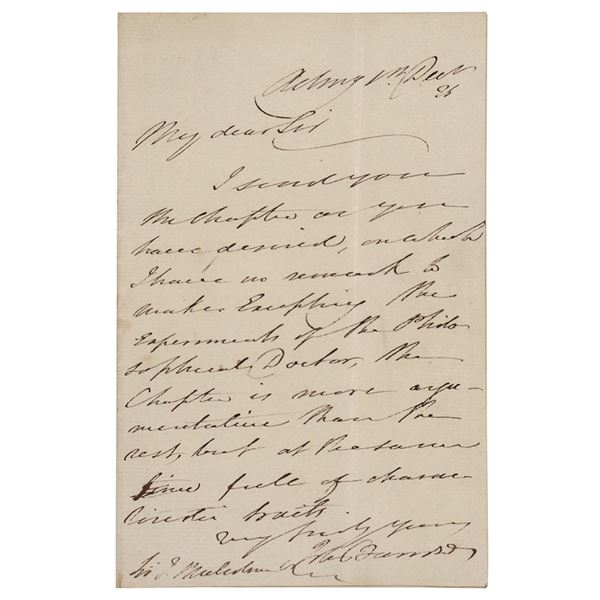 My dear Sir
I send you
the Chapter as you
have desired, on which
I have no remark to
make. Excepting the
Experiments of the Philo
sophical Doctor, the
Chapter is more argu-
mentative than the
rest, but at the same
time full of charac
teristic traits.
Very truly yours
Sir J. Malcolm